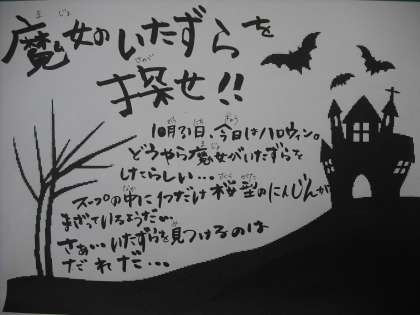 魔女のいたずらを
探せ!!
10月31日、今日はハロウィン。
どうやら魔女がいたずらを
したらしい…
スープの中に1つだけ桜型のにんじんが
まざっているようだ…
さあ…いたずらを見つけるのは
だれだ…